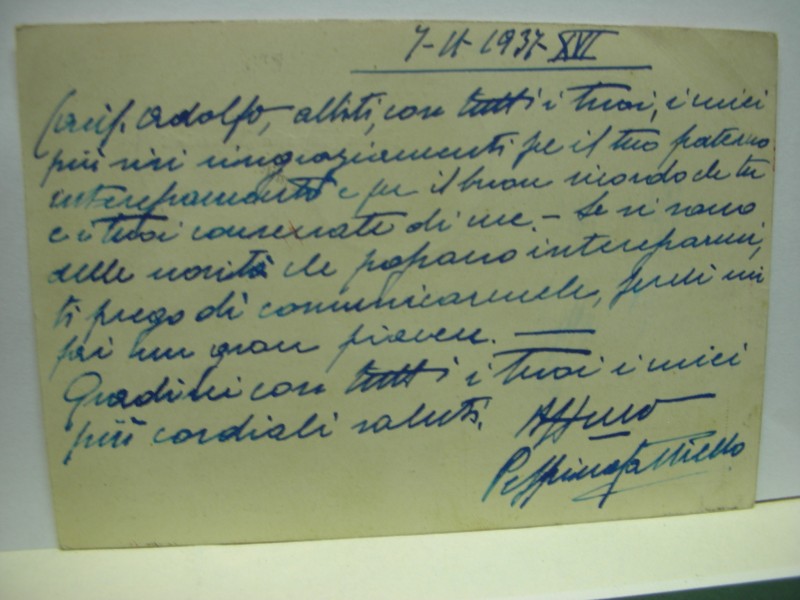 7-11-1937-XVI
Cariss. Adolfo, abbiti, con tutti i tuoi, i miei
più vivi ringraziamenti pe il tuo paterno
interessamento e pe il buon ricordo che tu
e i tuoi conservate di me. - Se vi sono
delle novità che possano interessarmi,
ti prego di comunicarmele, perchè mi
fai un gran piacere. —
Gradisci con tutti i tuoi i miei
più cordiali saluti. Aff/mo